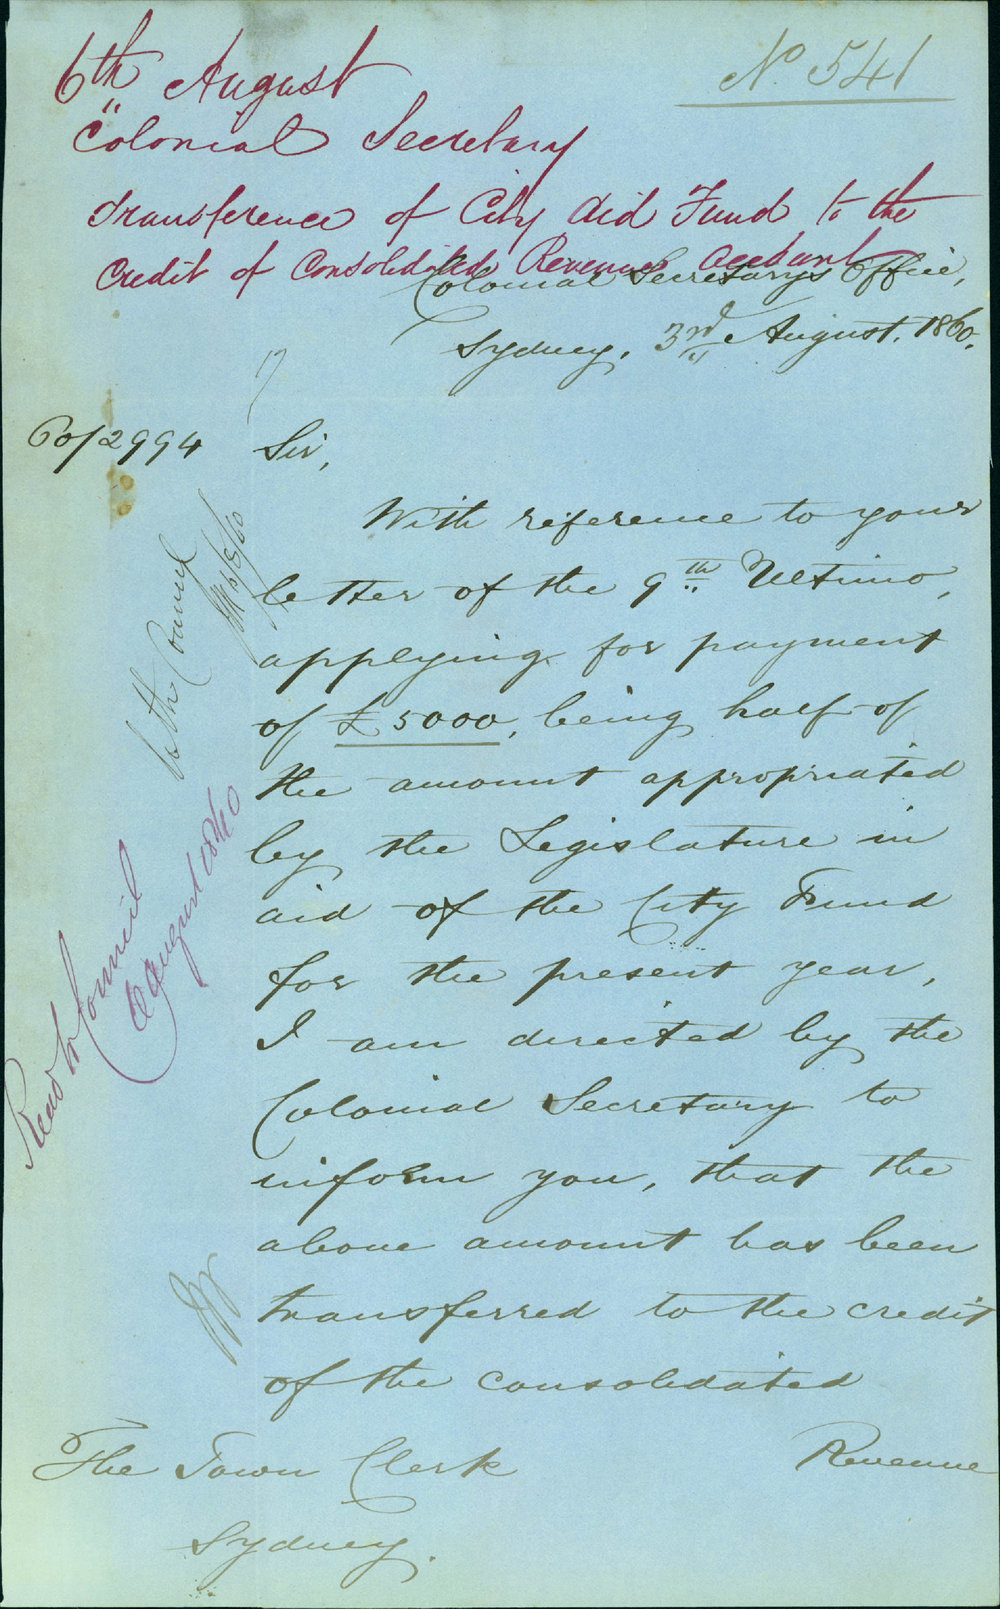 6th August
No 541
" Colonial Secretary
Transference of City Aid Fund to the
Credit of Consolidated Revenue Account
Colonial Secretary's Office,
Sydney, 3rd August. 1860.
60/2994
Sir,
With reference to your
letter of the 9th Ultimo,
applying for payment
of £5000, being half of
the amount appropriated
by the Legislature in
aid of the City Fund
for the present year,
I am directed by the
Colonial Secretary to
inform you, that the
above amount has been
transferred to the credit
of the consolidated
Revenue
The Town Clerk
Sydney.
to the Council
Read in Council
August 1860